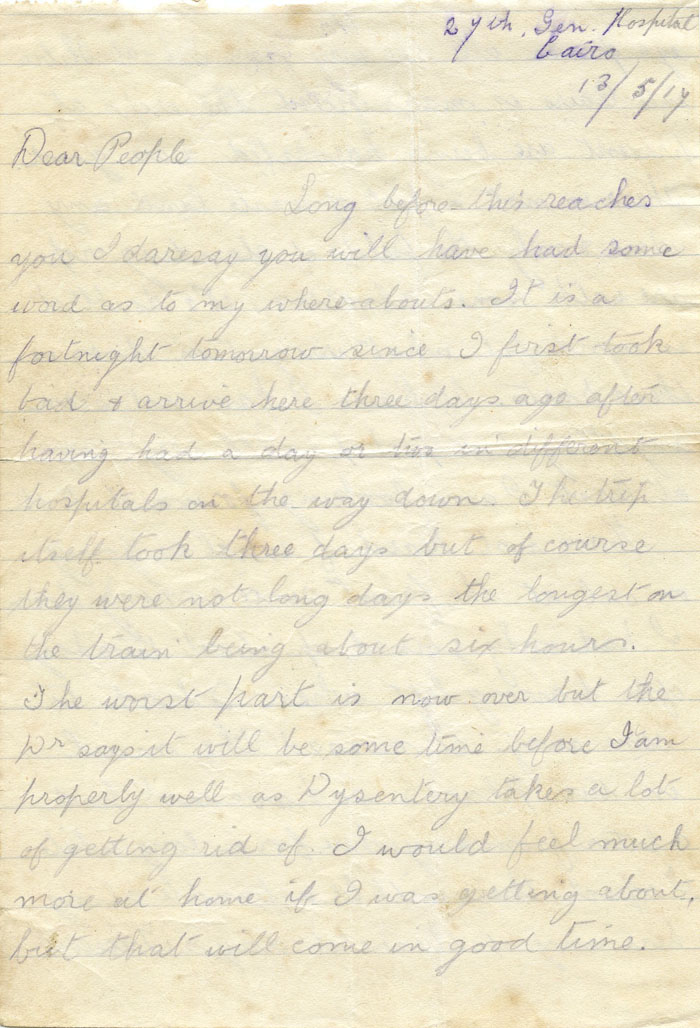 27th. Gen. Hospital
Cairo
13/5/17
Dear People
Long before this reaches
you I daresay you will have had some
word as to my whereabouts. It is a
fortnight tomorrow since I first took
bad & arrive here three days ago after
having had a day or two in different
hospitals on the way down. The trip
itself took three days but of course
they were not long days the longest on
the train being about six hours.
The worst part is now over but the
Dr says it will be some time before I am
properly well as Dysentery takes a lot
of getting rid of. I would feel much
more at home if I was getting about,
but that will come in good time.